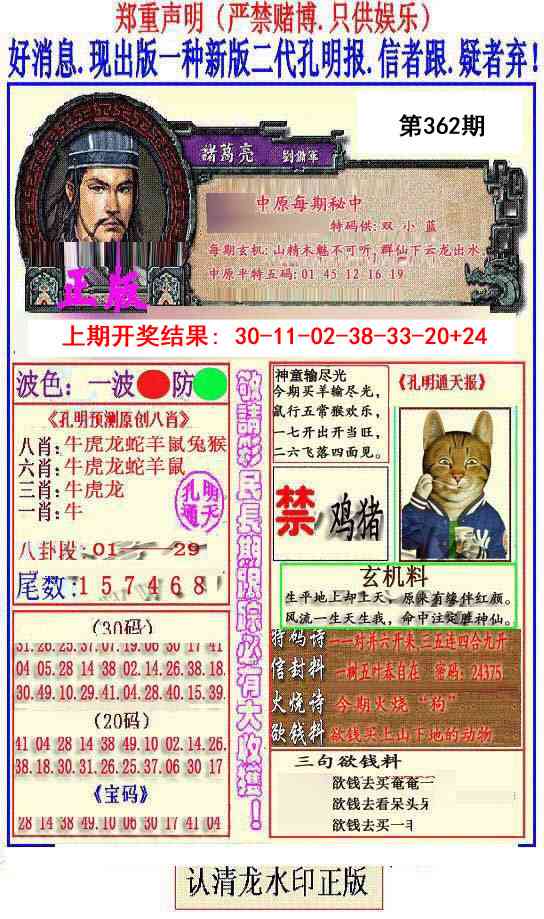 郑重声明（严禁赌博.只供娱乐）
好消息.现出版一种新版二代孔明报.信者跟.疑者弃!
第362期
諸葛亮
中原每期秘中
特码供:双 小 蓝
每期玄机:山精木魅不可听,群仙下云龙出水
中原平特五码:01 45 12 16 19
正版
上期开奖结果: 30-11-02-38-33-20+24
波色：一波 防
《孔明预测原创八肖》
八肖:牛虎龙蛇羊鼠兔猴
六肖:牛虎龙蛇羊鼠
三肖:牛虎龙
一肖:牛
孔明
通天
八卦段:01——29
尾数:157468
(30码)
31.26.25.37.07.19.06 30 17 41
04 05.28 14 38 02.14.26.38.18
30.49.10.29.41.04.28.40.15.39
(20码)
41 04 28 14 38 49.10 02.14.26.
38.18.30.31.26.25.37.06 30 17
《宝码》
28 14 38 49.10 06 30 17 41 04
敬請彩民長期跟踪必有大收獲！
神童输尽光
今期买羊输尽光，
鼠行五常猴欢乐，
一七开出开当旺，
二六飞落四面见。
《孔明通天报》
禁 鸡猪
玄机料
生平地上却上天、原来有缘伴红颜。
风流一生天生我，命中注定胜神仙。
特码诗 一一对并六开来 三五连四合九开
信封料 一树五叶春自在 密码：24375
火烧诗 今期火烧“狗”
欲钱料 欲钱买上山下地的动物
三句欲钱料
欲钱去买奄奄一
欲钱去看呆头
欲钱去买一
认清龙水印正版